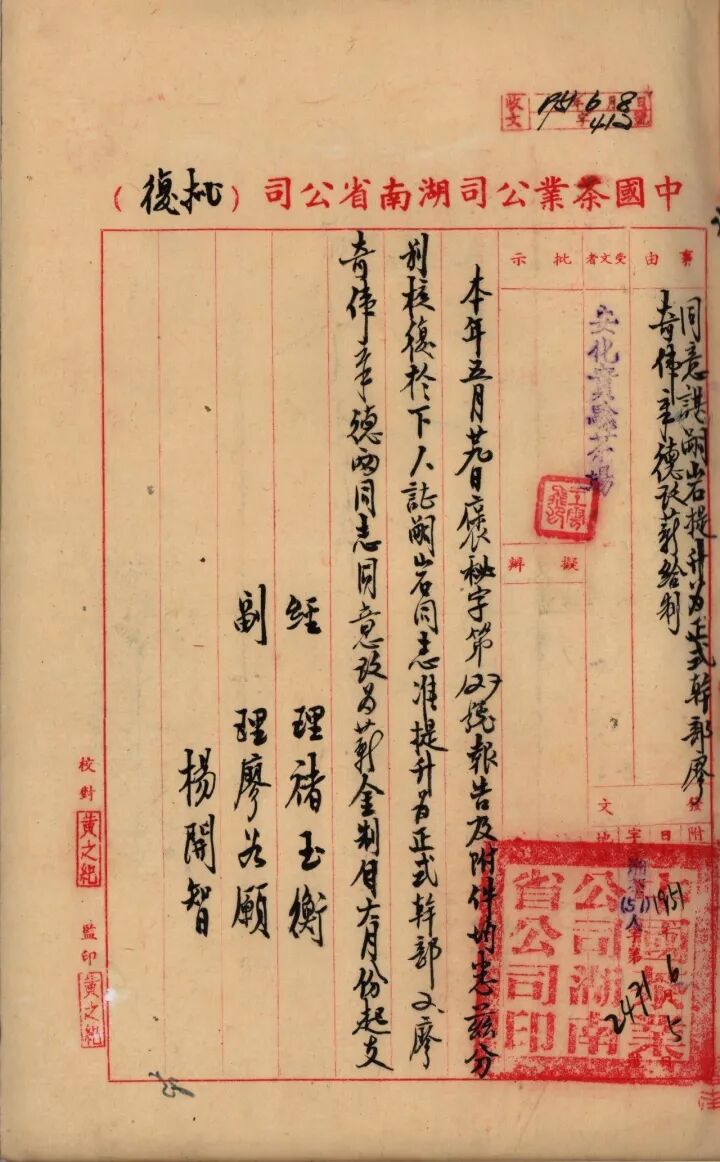 收文 1951年6月8日
字412號
中國茶業公司湖南省公司（批復）
事由
同意諶朔岩提升為正式幹部廖
奇偉李德改薪給制
受文者
安化實驗茶場
批示
擬辦
附
發文
日
1951 6 5
字
(51)人字第2431
中國茶業公司湖南省公司印
本年五月廿九日廉秘字第123號報告及附件均悉茲分
別核復於下人諶朔岩同志准提升為正式幹部又廖
奇偉李德兩同志同意改為薪金制自六月份起支
經理褚玉衡
副理廖兆願
楊開智
校對 黃之紀
監印 黃之紀